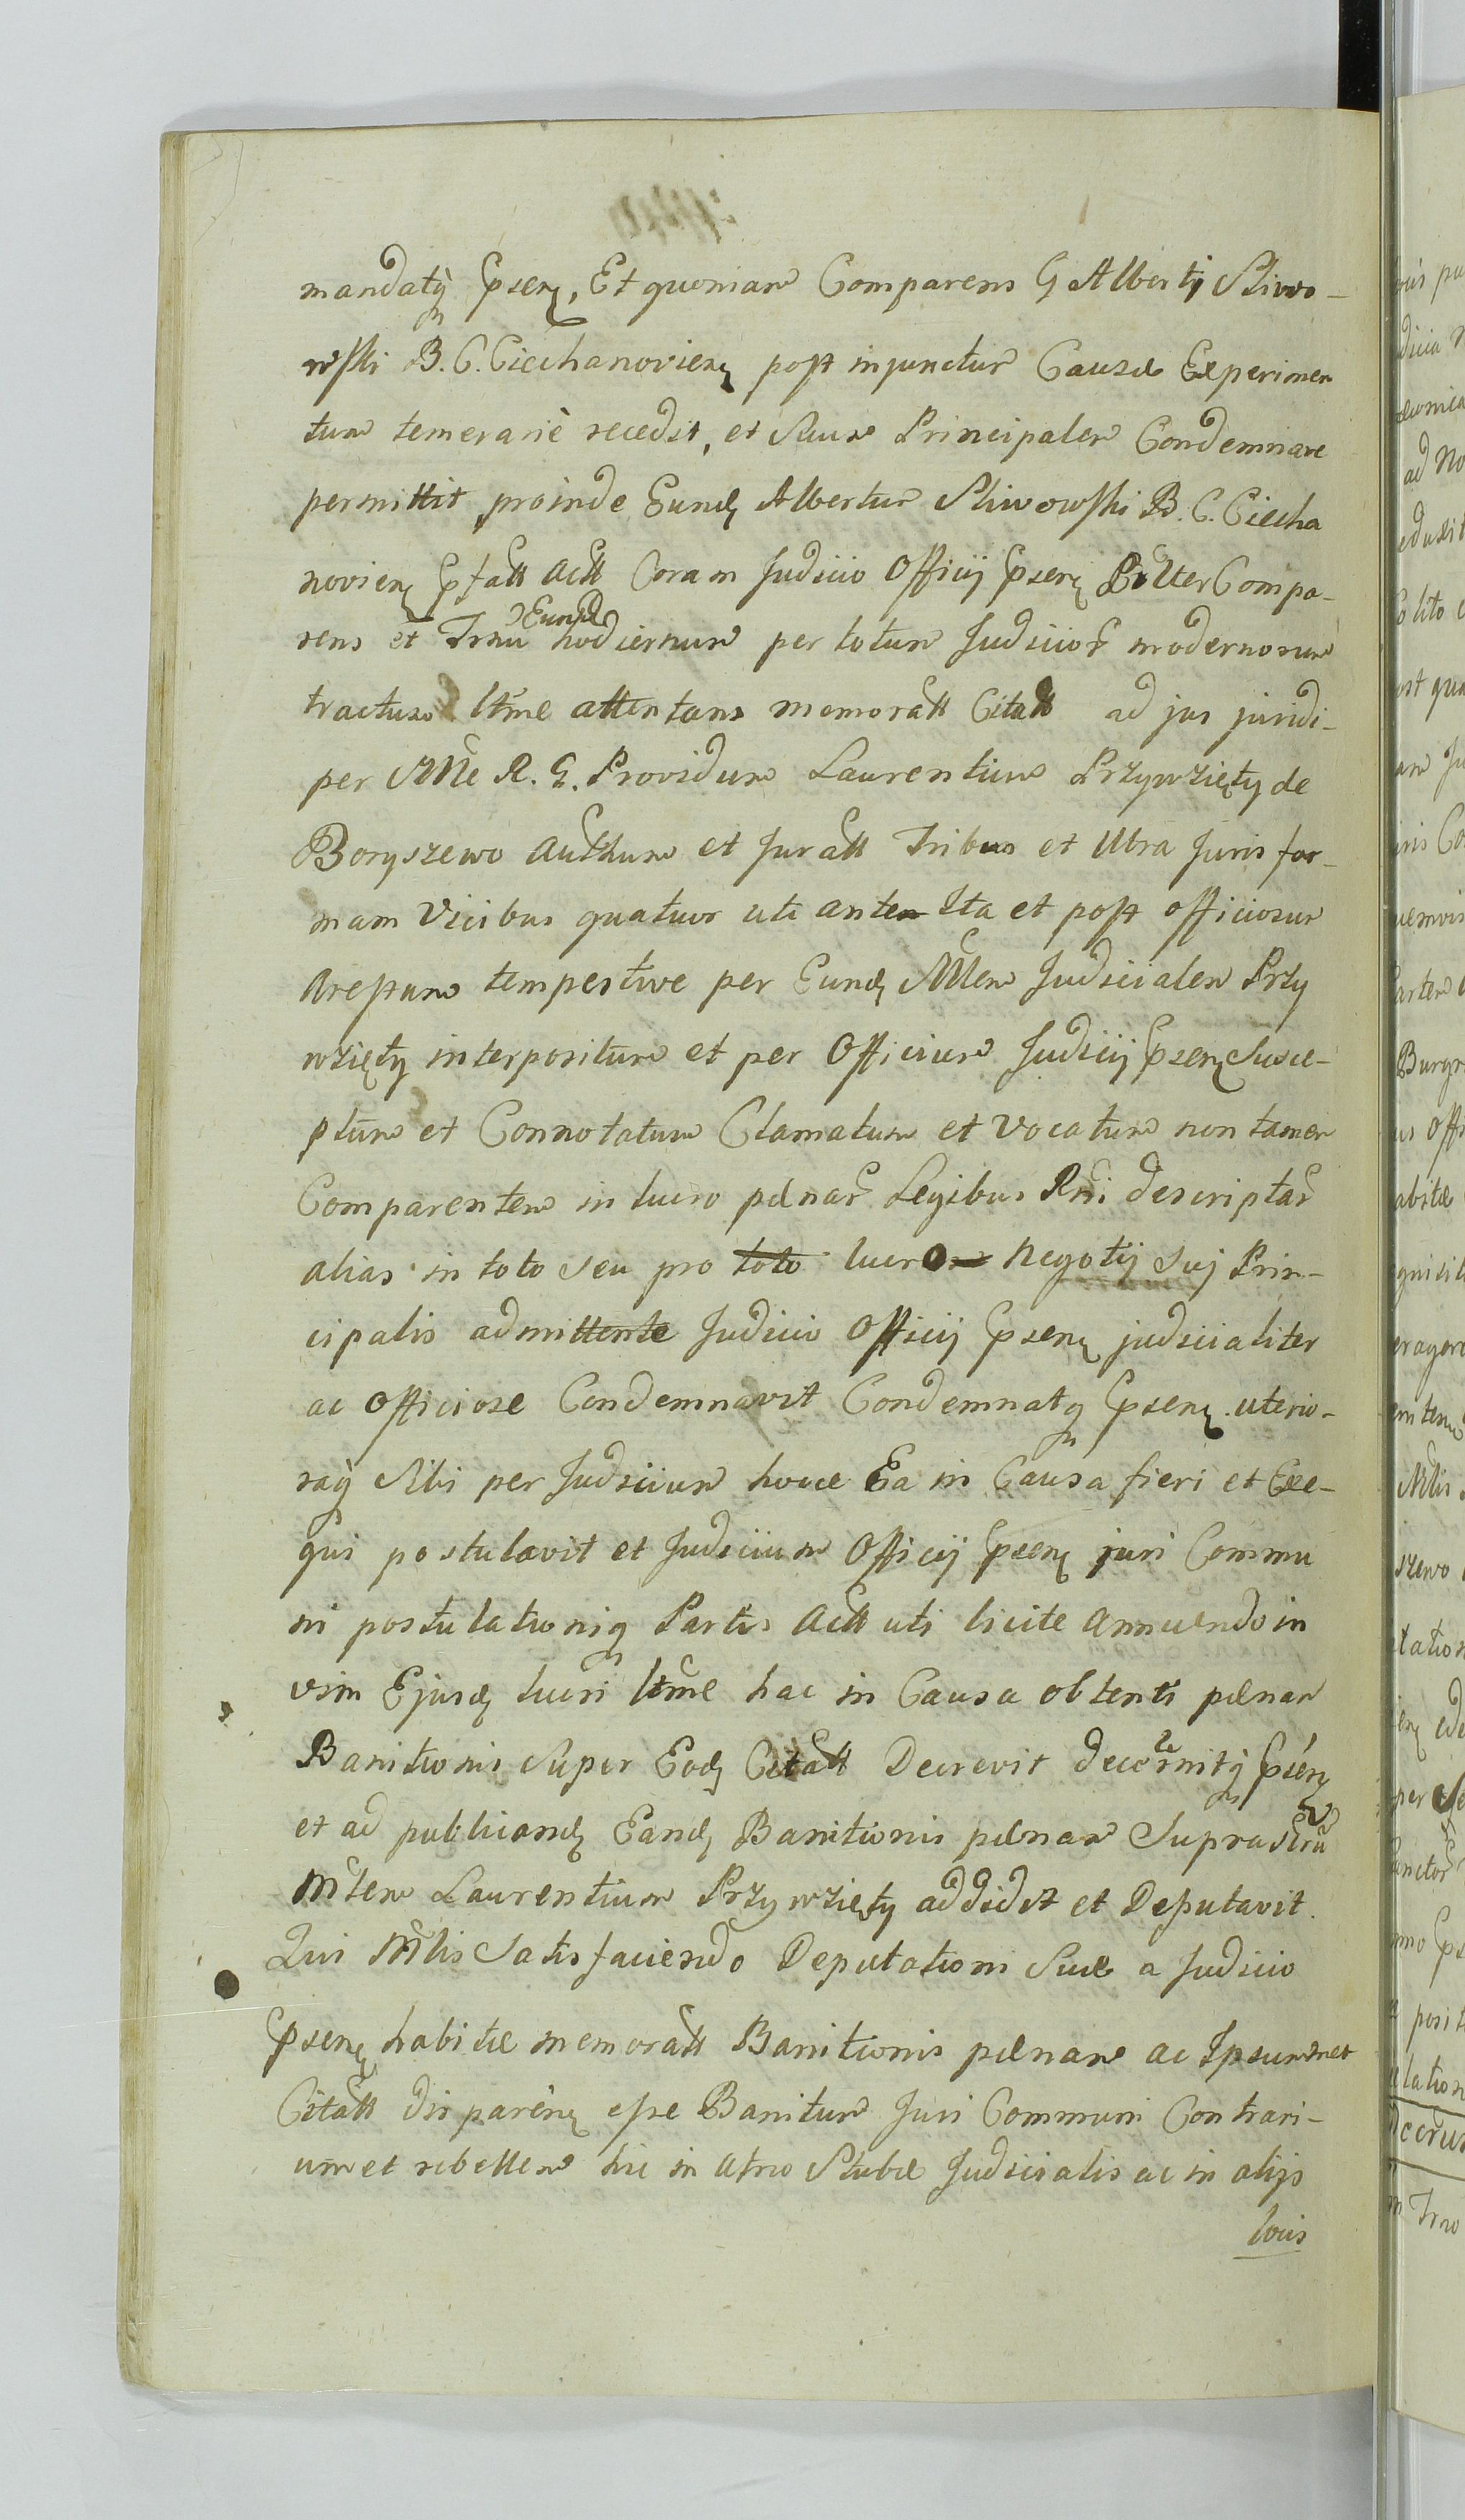 mandatq̃ Pseñ, Et quoniam Comparens G Alberti Sliwo-
wski B. C. Ciechanovien post injunctum Causæ Experimen
tum temerariè recedit, et Suum Principalem Condemnare
permittit, proinde Eund Albertum Sliwowski B. C. Ciecha
novien Pfatt Actt Coram Judicio Officij Psen Psltter Compa-
rens et Trnũ Eund hodiernum per totum Judicior modernorum
tractum ltme attentans memoratt Citatt ad jus juridi-
per Mlle R. G. Providum Laurentium Przywzięty de
Boryszewo Authum et Juratt Tribus et Ultra Juris for-
mam Vicibus quatuor uti ante Ita et post officiosum
Arestum tempestive per Eund Mllem Judicialem Przy
wzięty interpositum et per Officium Judicij Psen Susce-
ptum et Connotatum Clamatum et Vocatum non tamen
Comparentem in lucro pænar Legibus Rni descriptar
alias in toto seu pro toto lucro Negotij Suj Prin-
cipalis admittente Judicio Officij Psen judicialiter
ac Officiose Condemnavit Condemnatq Psen. uterio-
raq̃ Sibi per Judicium hocce Ea in Causa fieri et Exe-
qui postulavit et Judicium Officij Psen juri Commu
ni postulationiq Partis Actt uti licite Annuendo in
vim Ejusd lucri ltme hac in Causa obtenti pænam
Banitionis Super Eod Citatt Decrevit decernitq Psen
et ad publicand Eand Banitionis pænam Suprascru
Mltem Laurentium Przywzięty addidit et Deputavit.
Qui Mlis Satisfaciendo Deputationi Suæ a Judicio
Psen habitæ memoratt Banitionis pænam ac Ipsummet
Citatt disparen esse Banitum Juri Communi Contrari-
um et rebellem hic in Atrio Stubæ Judicialis ac in alijs
locis